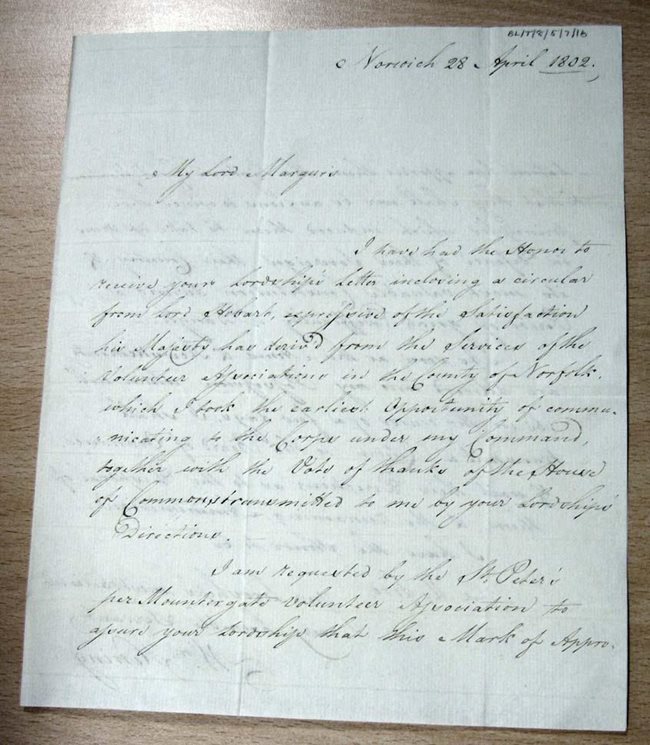 BL/T/8/5/7/16
Norwich 28 April 1802.
My Lord Marquis
I have had the Honor to
receive your Lordships Letter inclosing a circular
from Lord Hobart, expressive of the Satisfaction
his Majesty has deriv'd from the Services of the
Volunteer Associations in the County of Norfolk.
which I took the earliest Opportunity of commu-
nicating to the Corps under my Command,
together with the Vote of thanks of the House
of Commons transmitted to me by your Lordships
Directions.
I am requested by the St. Peter's
per Mountergate Volunteer Association to
assure your Lordship that this Mark of Appro-